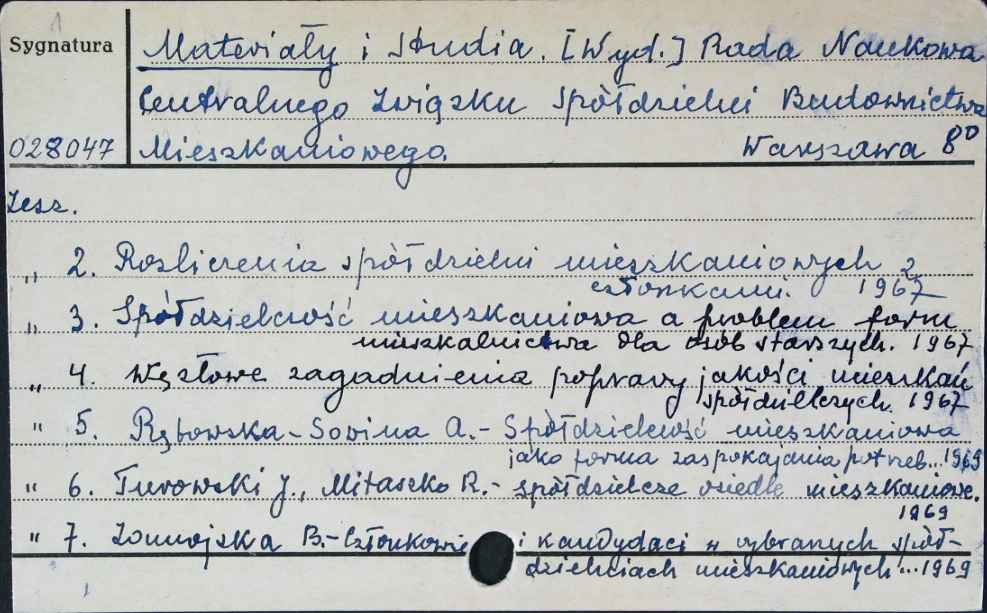 1
Sygnatura
Materiały i Studia. [Wyd.] Rada Naukowa
Centralnego Związku Spółdzielni Budownictwa
028047 Mieszkaniowego. Warszawa 8°
Zesz.
„ 2. Rozliczenia spółdzielni mieszkaniowych z
członkami. 1967
„ 3. Spółdzielczość mieszkaniowa a problem form
mieszkalnictwa dla osób starszych. 1967
„ 4. Węzłowe zagadnienia poprawy jakości mieszkań
spółdzielczych. 1967
" 5. A. - Spółdzielczość mieszkaniowa
jako forma zaspokajania potrzeb... 1969
" 6. Turowski J., R. - Spółdzielcze osiedle mieszkaniowe.
1969
" 7. B. - Członkowie i kandydaci w wybranych spół-
dzielniach mieszkaniowych... 1969